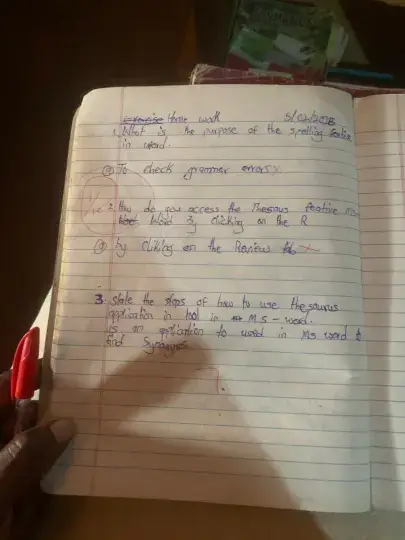 Exercise Home work
1. What is the purpose of the spelling featire
in word.
(a) To check grammar errors
2. How do you access the Thesaurus featire
word by clicking on the R
(a) by cliking on the Review tab
3. State the steps of how to use thesaurus
application in tool in MS-word.
is an application to used in Ms word to
find Synonyms